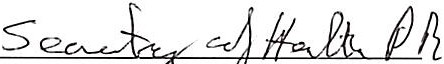 Secretary of Health PR